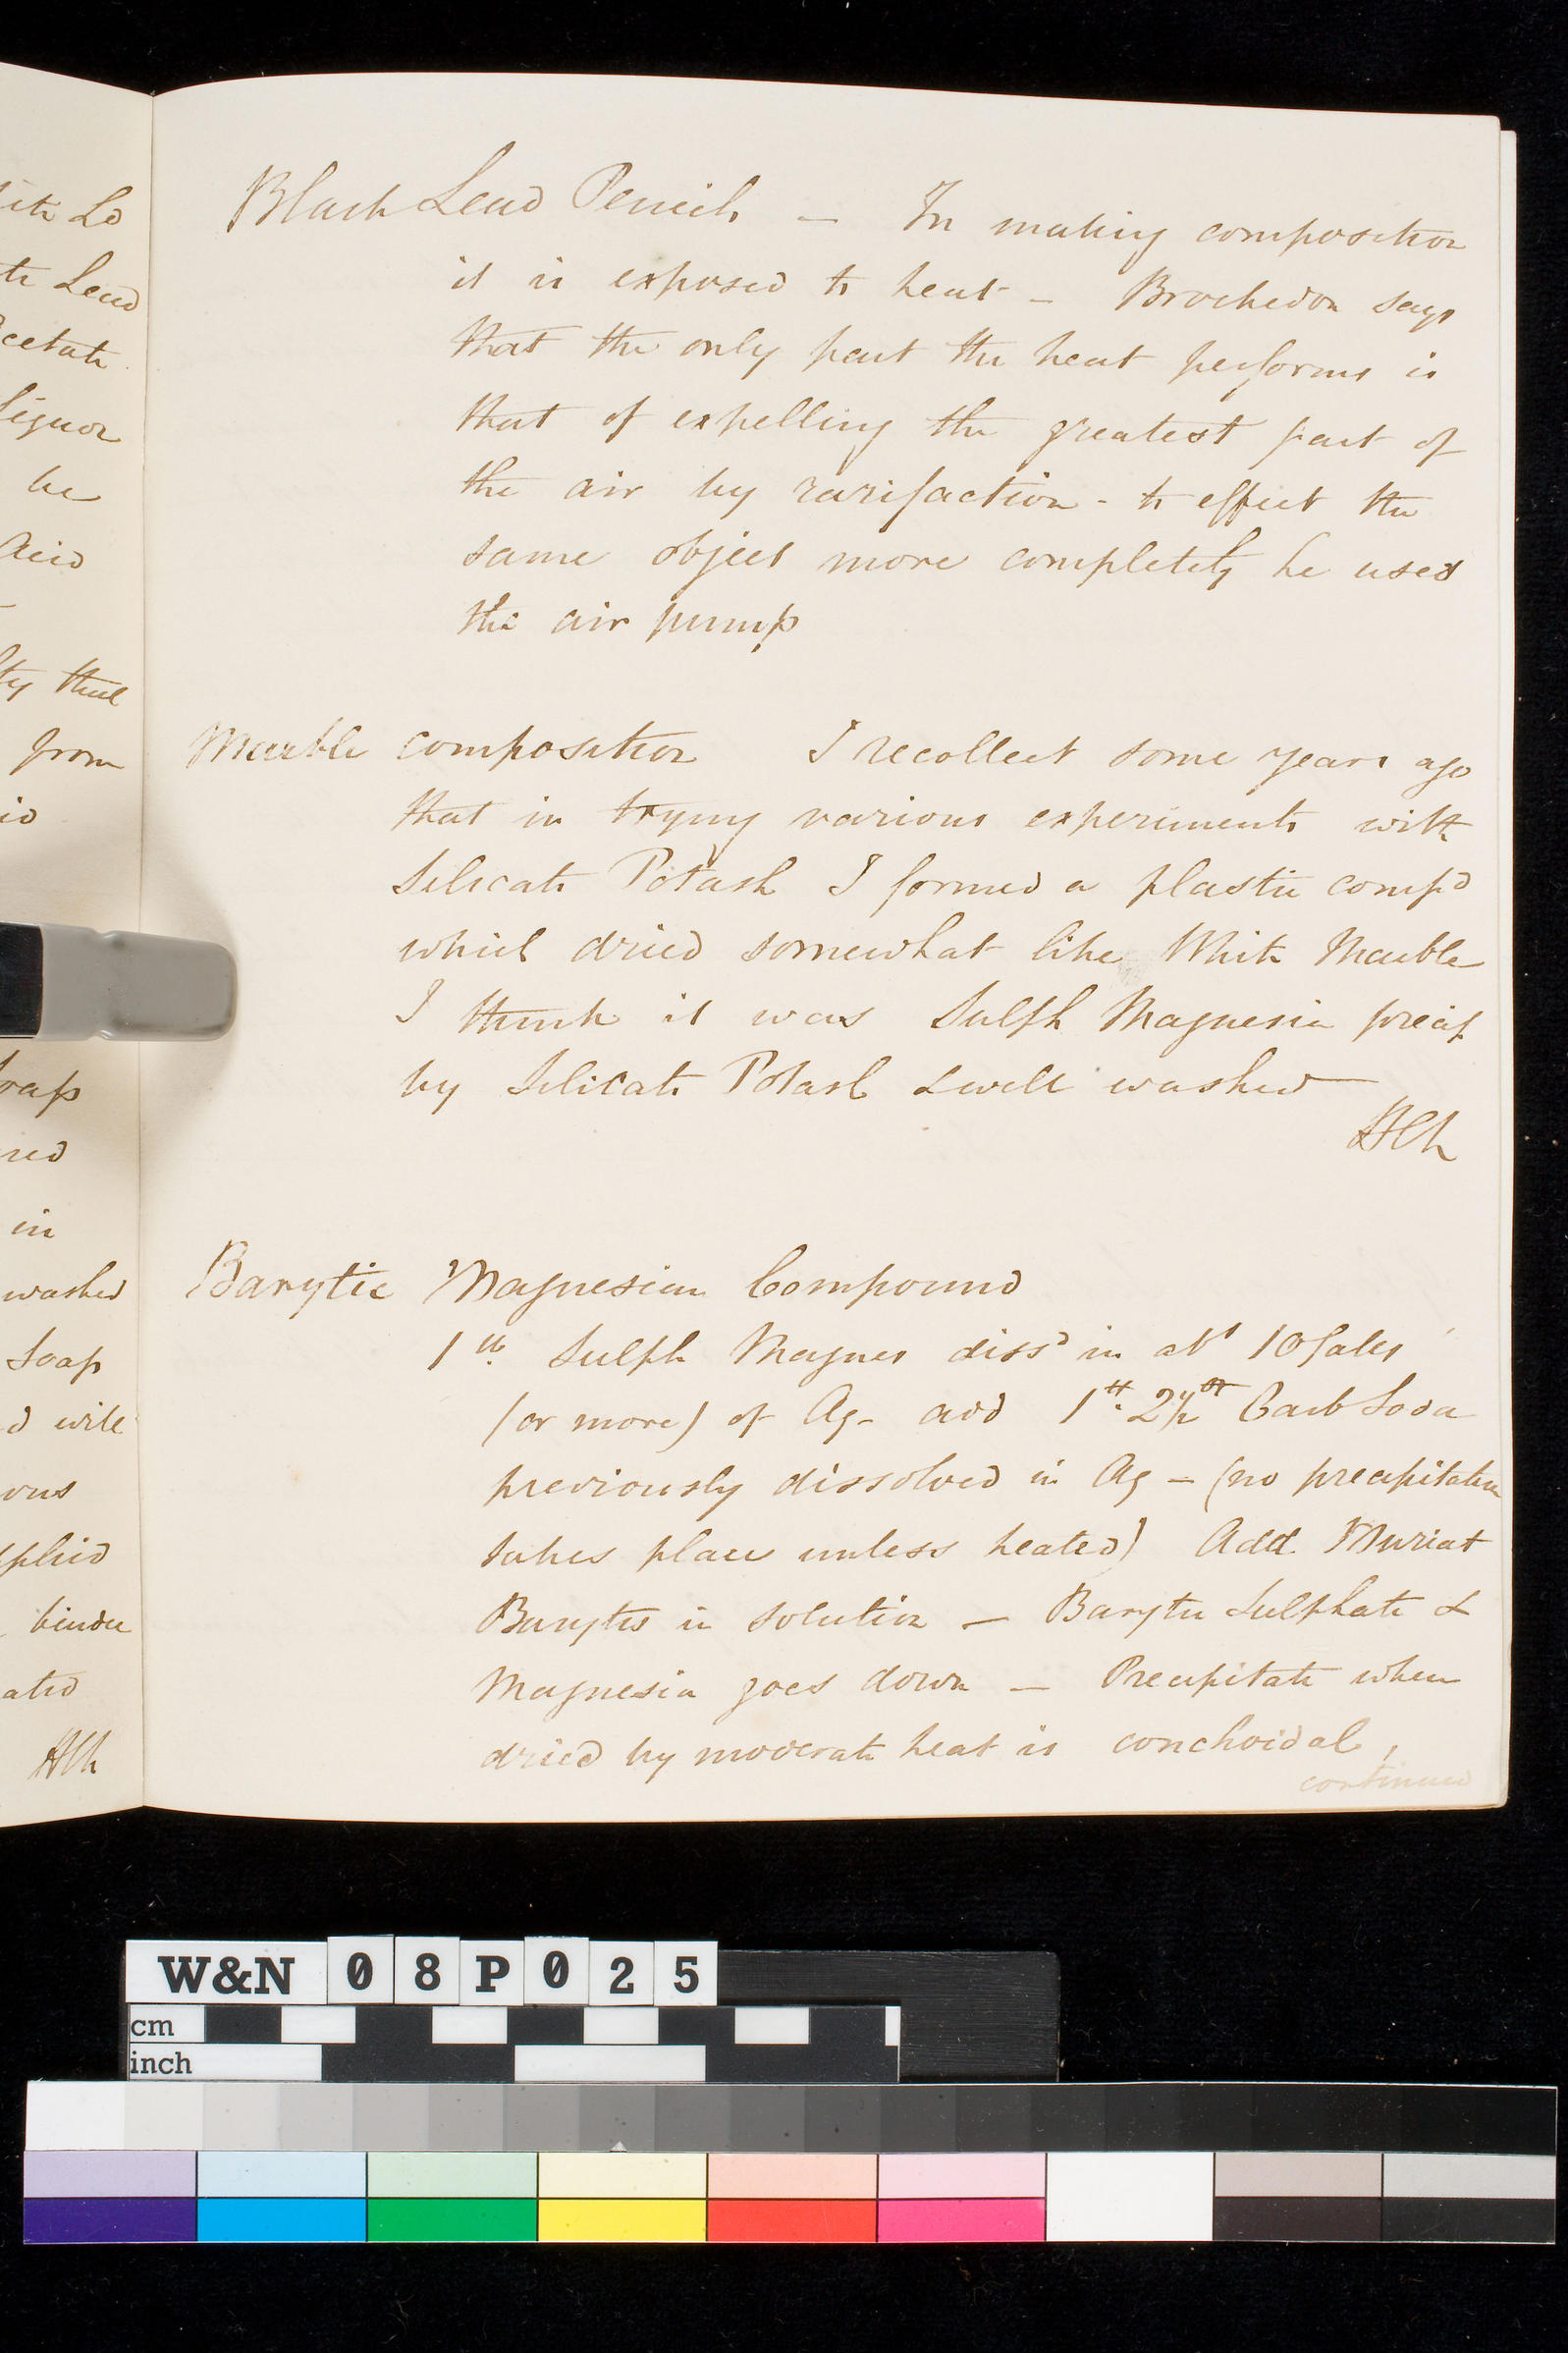 ite Lo
te Lead
Acetate
Liquor
be
Acid
from
in
washed
Soap
d will
binder
ated
HCh
Black Lead Pencils — In making composition
it is exposed to heat — Brockedon says
that the only part the heat performs is
that of expelling the greatest part of
the air by rarifaction - to effect the
same object more completely he uses
the air pump
Marble composition I recollect some years ago
that in trying various experiments with
Silicate Potash I formed a plastic compd
which dried somewhat like White Marble
I think it was Sulph Magnesia precip
by Silicate Potash & well washed —
HCh
Barytic Magnesian Compound
1 lb. Sulph Magnes dissd in abt 10 Galls
(or more) of Aq - add 1 lb. 2½ oz Carb Soda
previously dissolved in Aq — (no precipitation
takes place unless heated) Add Muriat
Barytes in solution — Barytic Sulphate &
Magnesia goes down — Precipitate when
dried by moderate heat is conchoidal,
continued
W&N 08P025
cm
inch